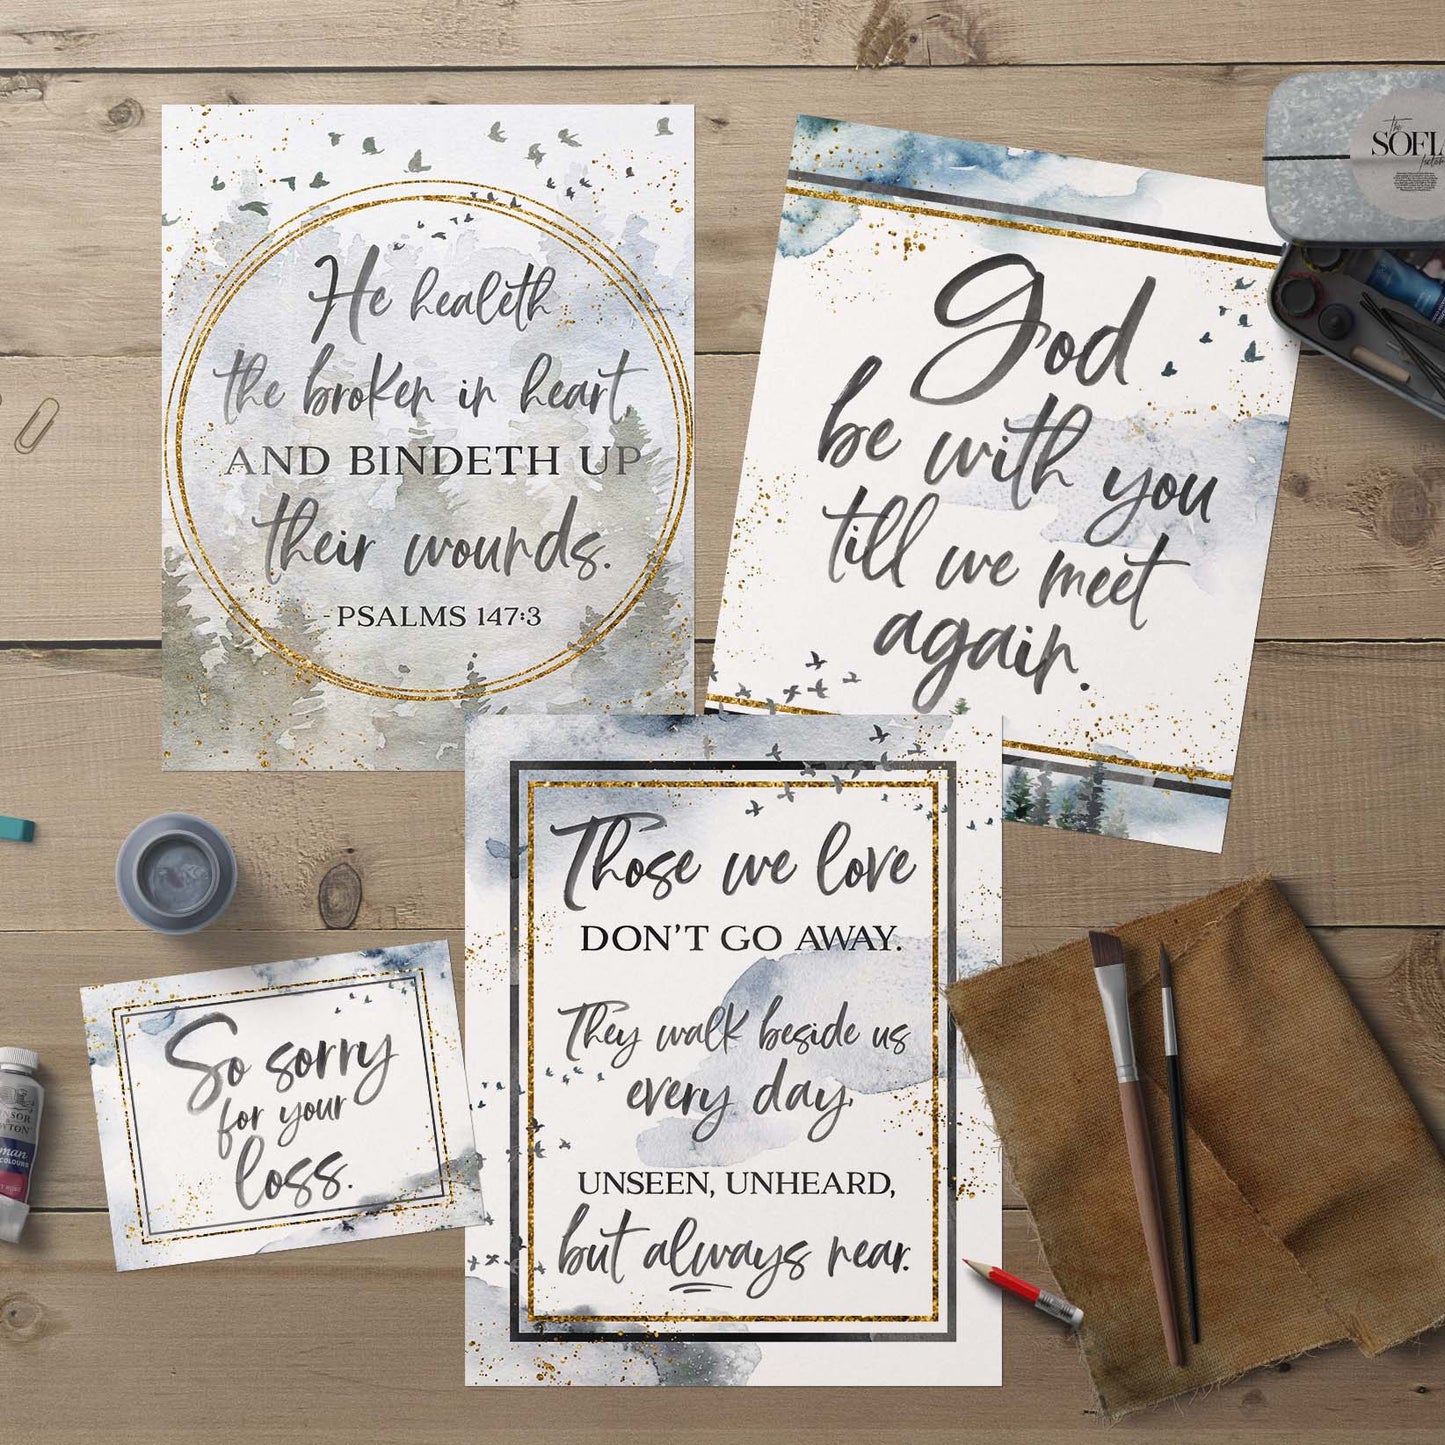 He healeth
the broken in heart
AND BINDETH UP
their wounds.
-PSALMS 147:3
God
be with you
till we meet
again.
The
SOFIA
So sorry
for your
loss.
Those we love
DON'T GO AWAY.
They walk beside us
every day,
UNSEEN, UNHEARD,
but always near.